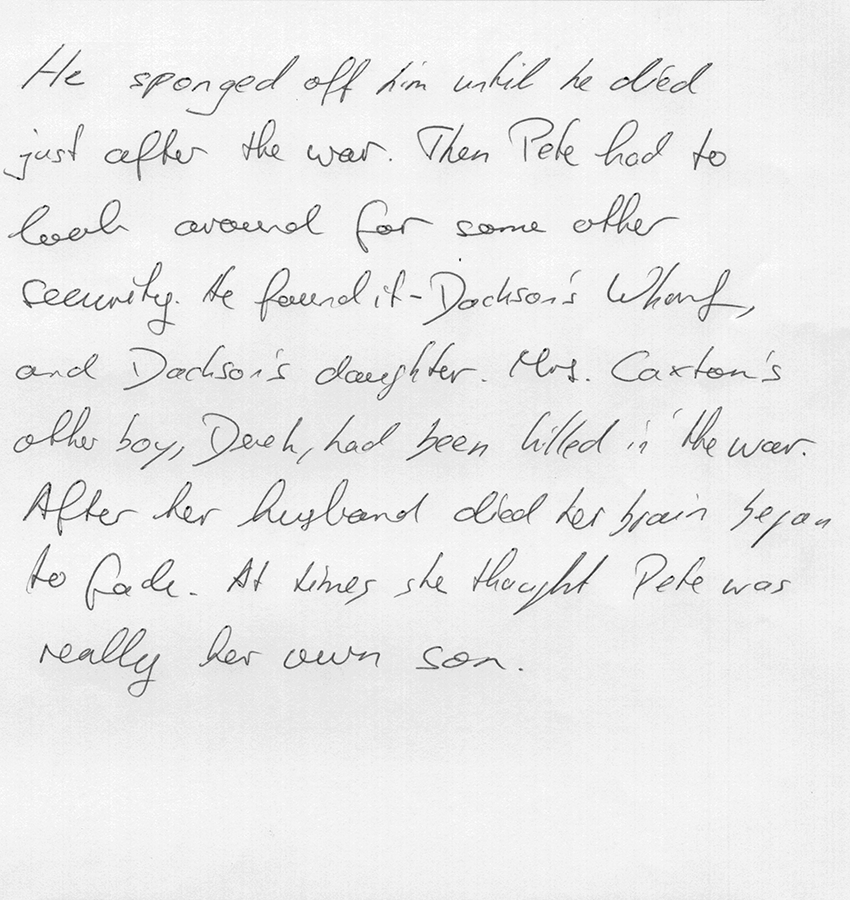 He sponged off him until he died
just after the war. Then Pete had to
look around for some other
security. He found it - Dockson's Wharf,
and Dackson's daughter. Mrs. Caxton's
other boy, Derek, had been killed in the war.
After her husband died her brain began
to fade. At times she thought Pete was
really her own son.